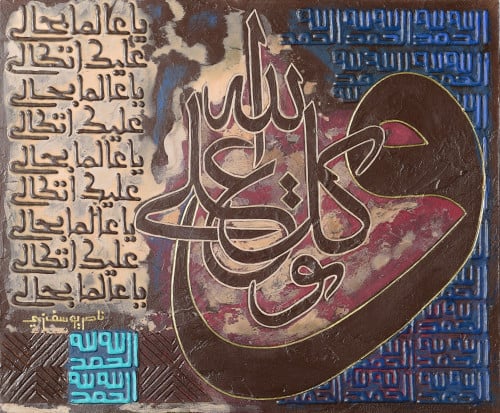 يا عالما بحالي
عليك اتكالي
يا عالما بحالي
عليك اتكالي
يا عالما بحالي
عليك اتكالي
يا عالما بحالي
عليك اتكالي
يا عالما بحالي
وتوكل على الله
ناصر یوسفزی
الحمد لله
الحمد لله